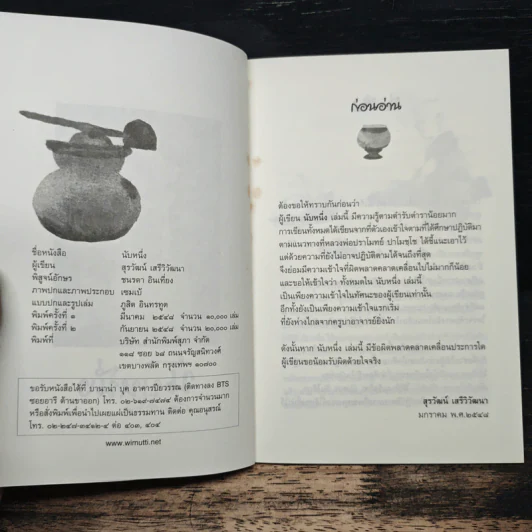 ชื่อหนังสือ นับหนึ่ง
ผู้เขียน สุรวัฒน์ เสรีวิวัฒนา
พิสูจน์อักษร ชนรดา อินเที่ยง
ภาพปกและภาพประกอบ เซมเบ้
แบบปกและรูปเล่ม ภูสิต อินทรทูต
พิมพ์ครั้งที่ ๑ มีนาคม ๒๕๔๘ จำนวน ๑๐,๐๐๐ เล่ม
พิมพ์ครั้งที่ ๒ กันยายน ๒๕๔๘ จำนวน ๒๐,๐๐๐ เล่ม
พิมพ์ที่ บริษัท สำนักพิมพ์สุภา จำกัด
๑๑๘ ซอย ๖๘ ถนนจรัญสนิทวงศ์
เขตบางพลัด กรุงเทพฯ ๑๐๗๐๐
ขอรับหนังสือได้ที่ บานาน่า บุค อาคารปิยวรรณ (ติดทางลง BTS
ซอยอารี ด้านขาออก) โทร. ๐๒-๖๑๗-๗๔๗๔ ต้องการจำนวนมาก
หรือสั่งพิมพ์เพื่อนำไปเผยแผ่เป็นธรรมทาน ติดต่อ คุณอนุสรณ์
โทร. ๐๒-๒๔๗-๓๔๑๒-๔ ต่อ ๔๐๓, ๔๐๔
www.wimutti.net
ก่อนอ่าน
ต้องขอให้ทราบกันก่อนว่า
ผู้เขียน นับหนึ่ง เล่มนี้ มีความรู้ตามตำรับตำราน้อยมาก
การเขียนทั้งหมดได้เขียนจากที่ตัวเองเข้าใจตามที่ได้ศึกษาปฏิบัติมา
ตามแนวทางที่หลวงพ่อปราโมทย์ ปาโมชฺโช ได้ชี้แนะเอาไว้
แต่ด้วยความที่ยังไม่อาจปฏิบัติตามได้จนถึงที่สุด
จึงย่อมมีความเข้าใจที่ผิดพลาดคลาดเคลื่อนไปไม่มากก็น้อย
และขอให้เข้าใจว่า ทั้งหมดใน นับหนึ่ง เล่มนี้
เป็นเพียงความเข้าใจในทัศนะของผู้เขียนเท่านั้น
อีกทั้งยังเป็นความเข้าใจแรกเริ่ม
ที่ยังห่างไกลจากครูบาอาจารย์ยิ่งนัก
ดังนั้นหาก นับหนึ่ง เล่มนี้ มีข้อผิดพลาดคลาดเคลื่อนประการใด
ผู้เขียนขอน้อมรับผิดด้วยใจจริง
สุรวัฒน์ เสรีวิวัฒนา
มกราคม พ.ศ.๒๕๔๘